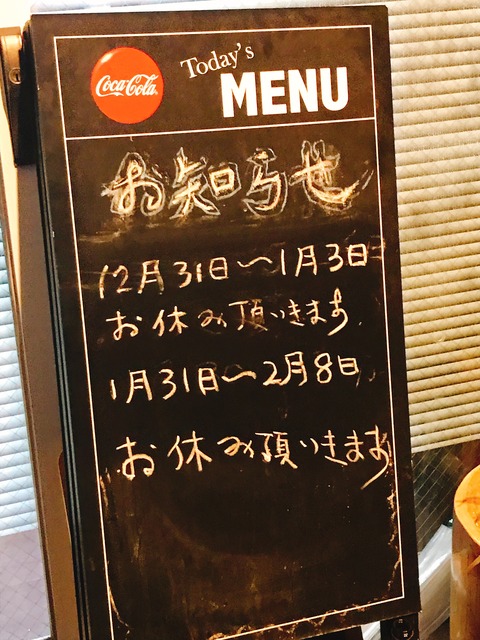 Coca-Cola
Today's
MENU
お知らせ
12月31日〜1月3日
お休み頂いきます
1月31日〜2月8日
お休み頂いきます